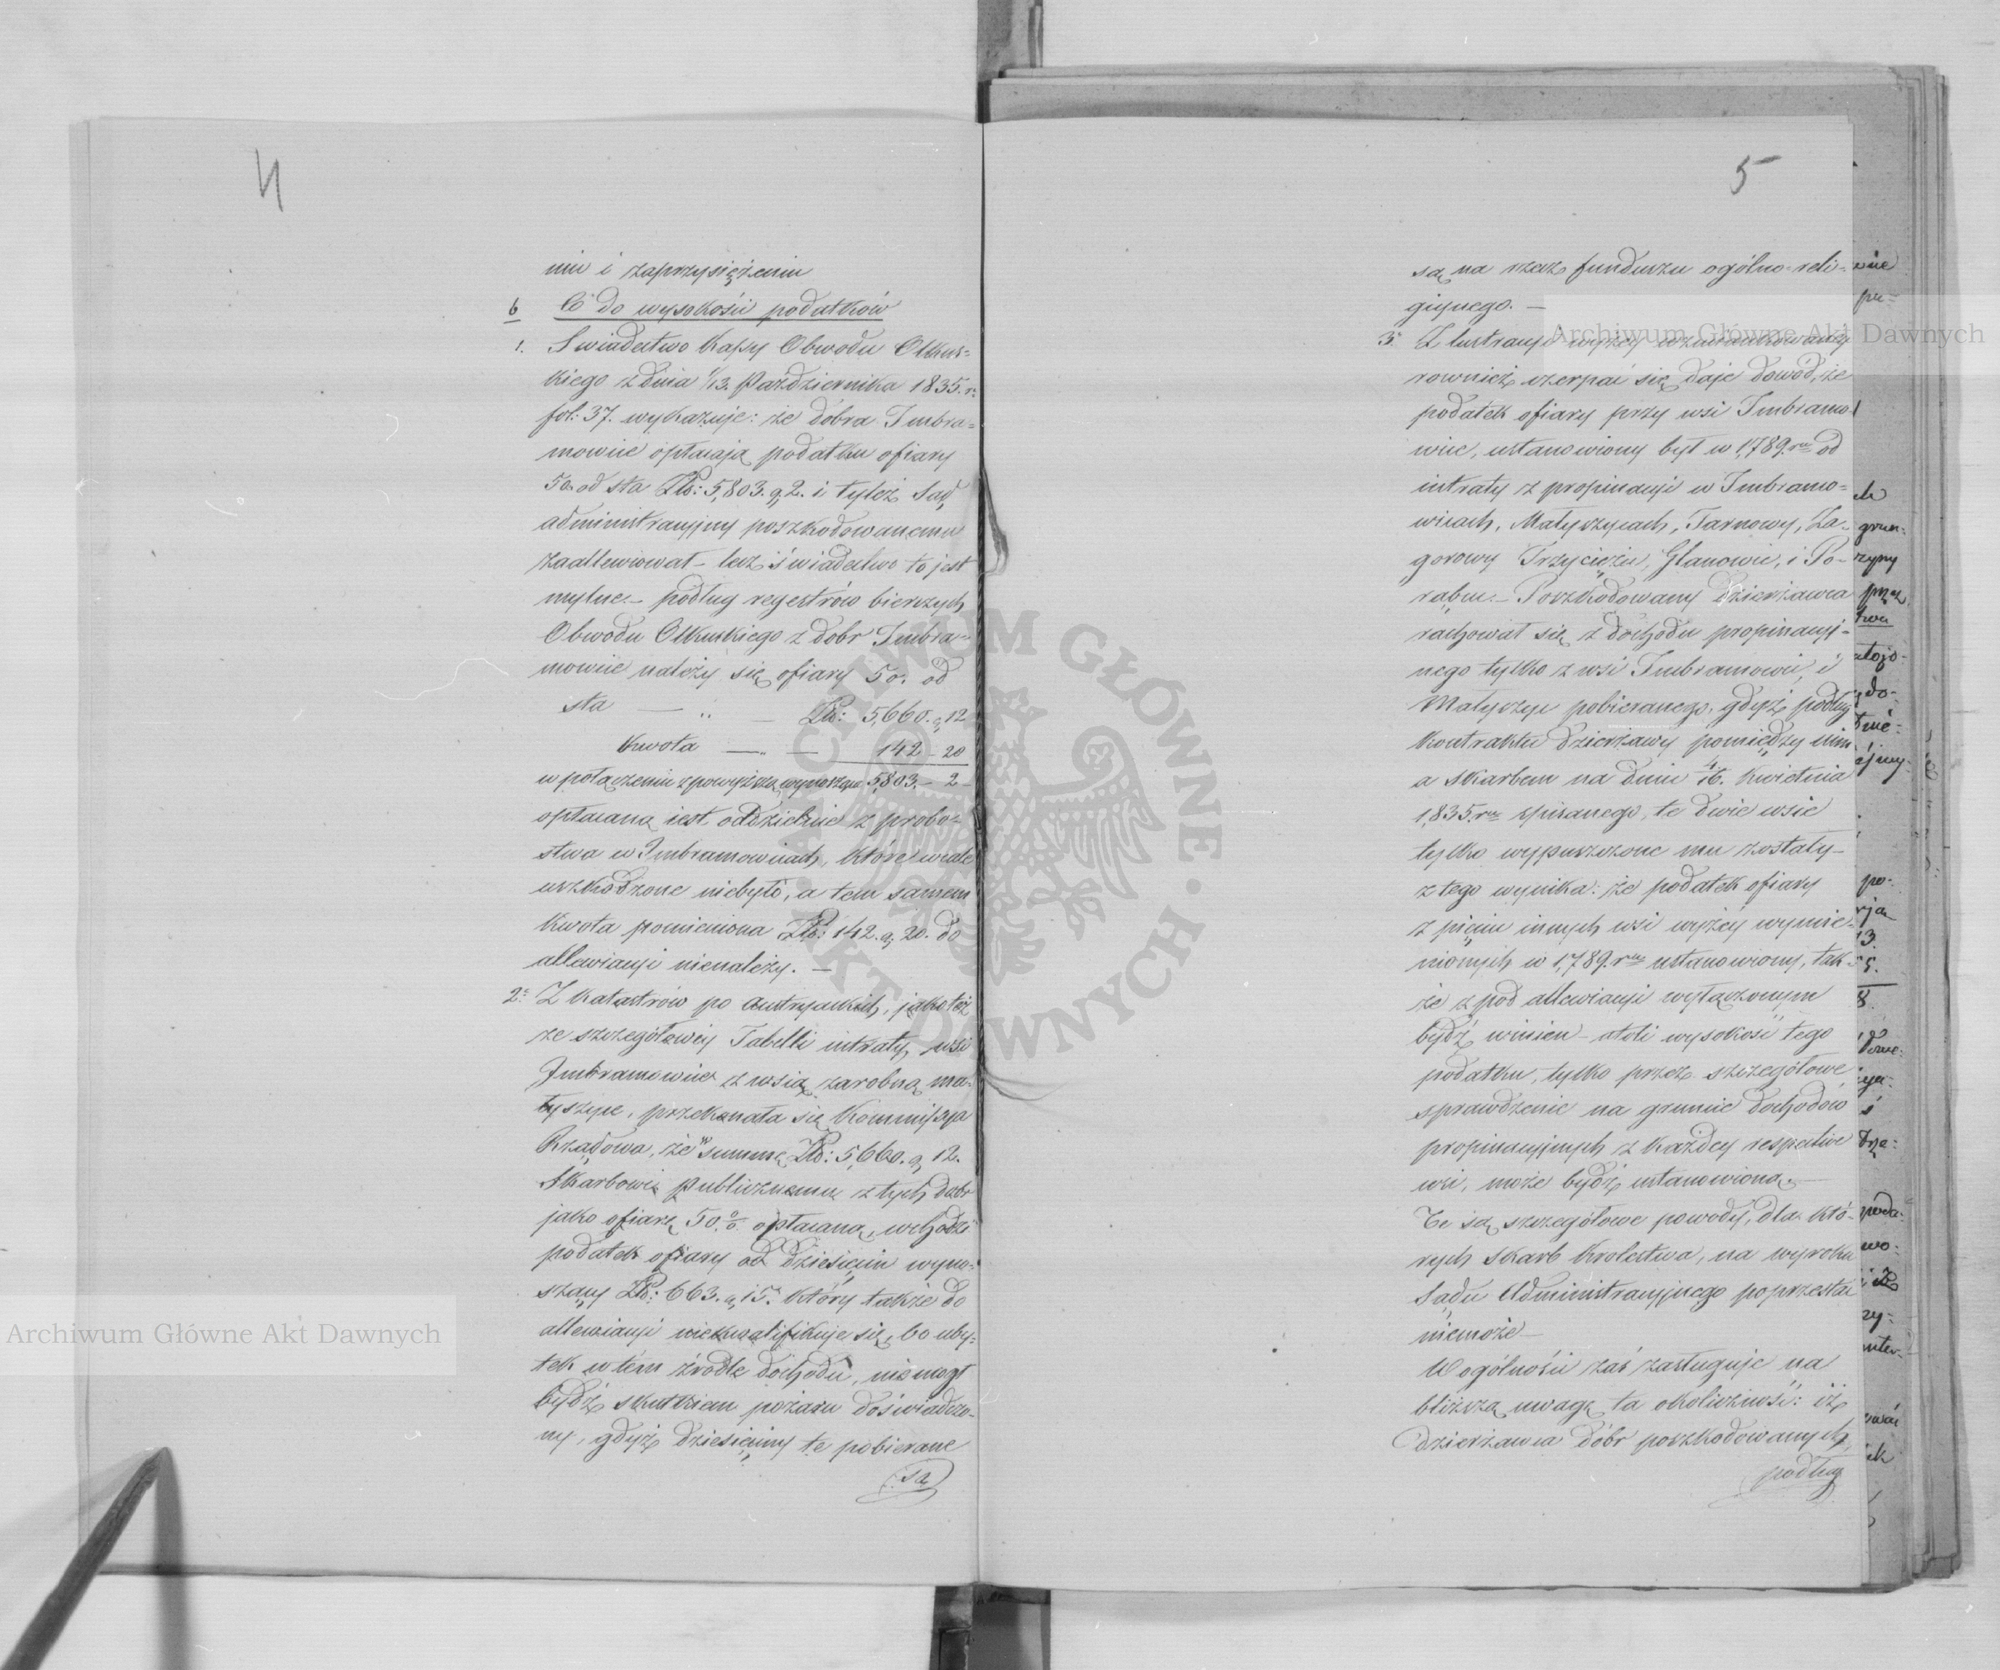 4
niu i zaprzysiężeniu
b Co do wysokości podatków
1. Swiadectwo Kassy Obwodu Olkus-
kiego z dnia 1/13. Października 1835. r.
fol: 37. wykazuje: że dobra Imbra-
mowice opłacają podatku ofiary
50. od sta Złp: 5,803. g. 2. i tyleż Sąd
administracyjny poszkodowanemu
zaallewiował – lecz świadectwo to jest
mylne. – podług regestrów bierczych
Obwodu Olkuskiego z dobr Imbra-
mowice należy się ofiary 50. od
sta — „ — Złp: 5,660. g. 12
Kwota — „ — 142 – 20
w połączeniu z powyższą wynosząca 5,803. – 2 –
opłacaną jest oddzielnie z probo-
stwa w Imbramowicach, które wcale
uszkodzone niebyło, a tem samem
kwota pomieniona Złp: 142. g. 20. do
allewiacyi nienależy. –
2. Z Katastrów po austryackich, jako też
ze szczegółowéy Tabelli intraty, wsi
Imbramowice z wsią zarobną Ma-
tyszyce, przekonała się Kommissya
Rządowa, że w summę Złp: 5,660. g. 12.
Skarbowi publicznemu z tych dobr
jako ofiarę 50 % opłacaną, wchodzi
podatek ofiary od dziesięcin wyno-
szący Złp: 663. g. 15. który także do
allewiacyi niekwalifikuje się, bo uby-
tek w tém źrodle dochodu, niemógł
bydź skutkiem pożaru doświadczo-
ny, gdyż dziesięciny te pobierane
są
5
są na rzecz funduszu ogólno-reli-
giynego. –
3. Z lustracyi wyżéy wzmiankowanéy
rownież czerpać się daje dowód, że
podatek ofiary przy wsi Imbramo-
wice, ustanowiony był w 1,789. rm od
intraty z propinacyi w Imbramo-
wicach, Matyszycach, Tarnawy, Za-
gorowy Trzyciężu, Glanowie, i Po-
rąbce. – Poszkodowany Dzierżawca
rachował się z dochodu propinacyj-
nego tylko z wsi Imbramowic, i
Matyszyc pobieranego, gdyż podług
kontraktu dzierżawy pomiędzy nim
a skarbem na dniu 4/16. Kwietnia
1,835. r. spisanego, te dwie wsie
tylko wypuszczone mu zostały –
z tego wynika: że podatek ofiary
z pięciu innych wsi wyżéy wymie-
nionych w 1,789. rm ustanowiony, tak-
że z pod allewiacyi wyłączonym
bydź winien – atoli wysokość tego
podatku, tylko przez szczegółowe
sprawdzenie na gruncie dochodów
propinacyjnych z każdéy respective
wsi, może bydź ustanowioną. –
Te są szczegółowe powody, dla któ-
rych Skarb Krolestwa, na wyroku
Sądu Administracyjnego poprzestać
niemoże –
W ogólności zaś zasługuje na
bliższą uwagę ta okoliczność: iż
dzierżawca dóbr poszkodowanych,
podług
Archiwum Główne Akt Dawnych
Archiwum Główne Akt Dawnych
ARCHIWUM GŁÓWNE • AKT DAWNYCH •